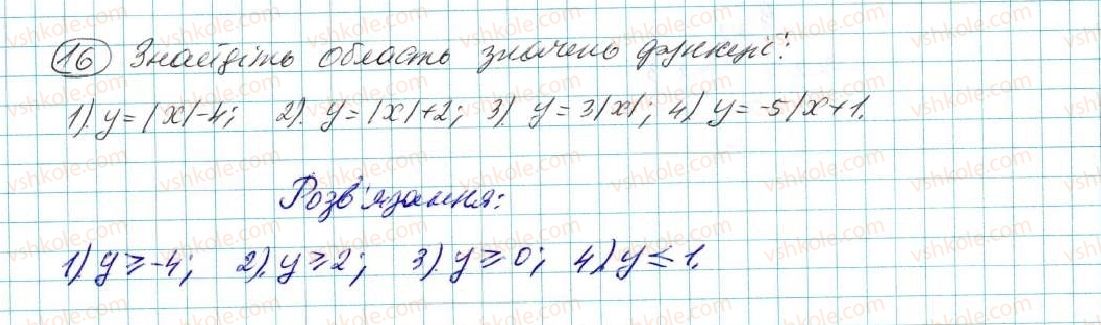 16 Знайдіть область значень функції:
1). y=|x|-4; 2). y=|x|+2; 3) y=3|x|; 4) y=-5|x+1.
Розв'язання:
1) y⩾-4; 2). y⩾2; 3). y⩾0; 4). y≤1.